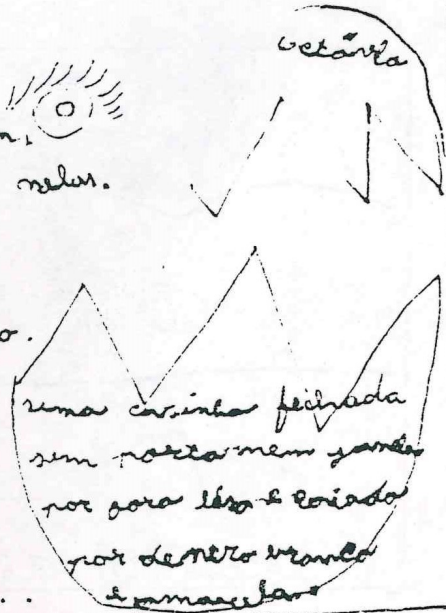 octávia
nelas.
o.
uma casinha fechada
sem porta nem janela
por fora lisa e coriada
por dentro branca
e amarela